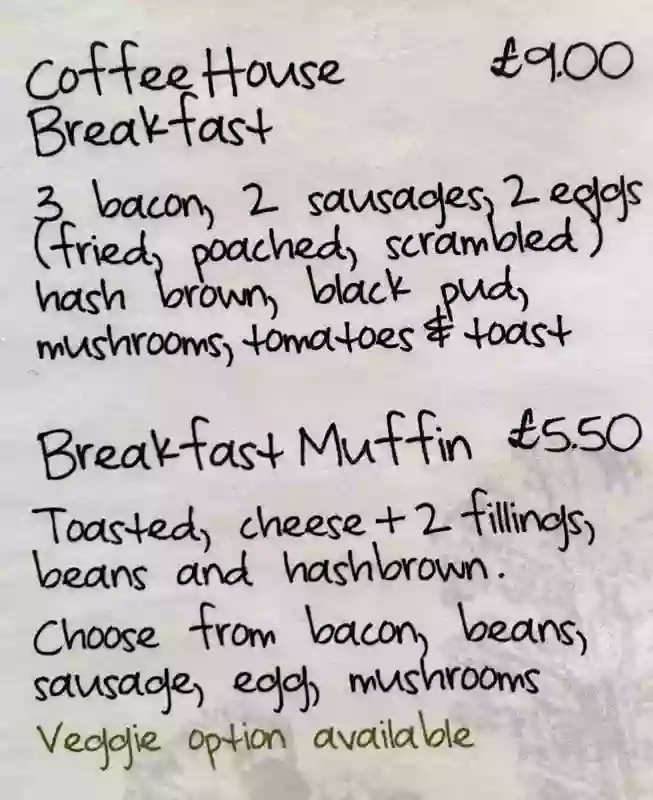 Coffee House £9.00
Breakfast
3 bacon, 2 sausages, 2 eggs
(fried, poached, scrambled)
hash brown, black pud,
mushrooms, tomatoes & toast
Breakfast Muffin £5.50
Toasted, cheese + 2 fillings,
beans and hashbrown.
Choose from bacon, beans,
sausage, egg, mushrooms
Veggie option available